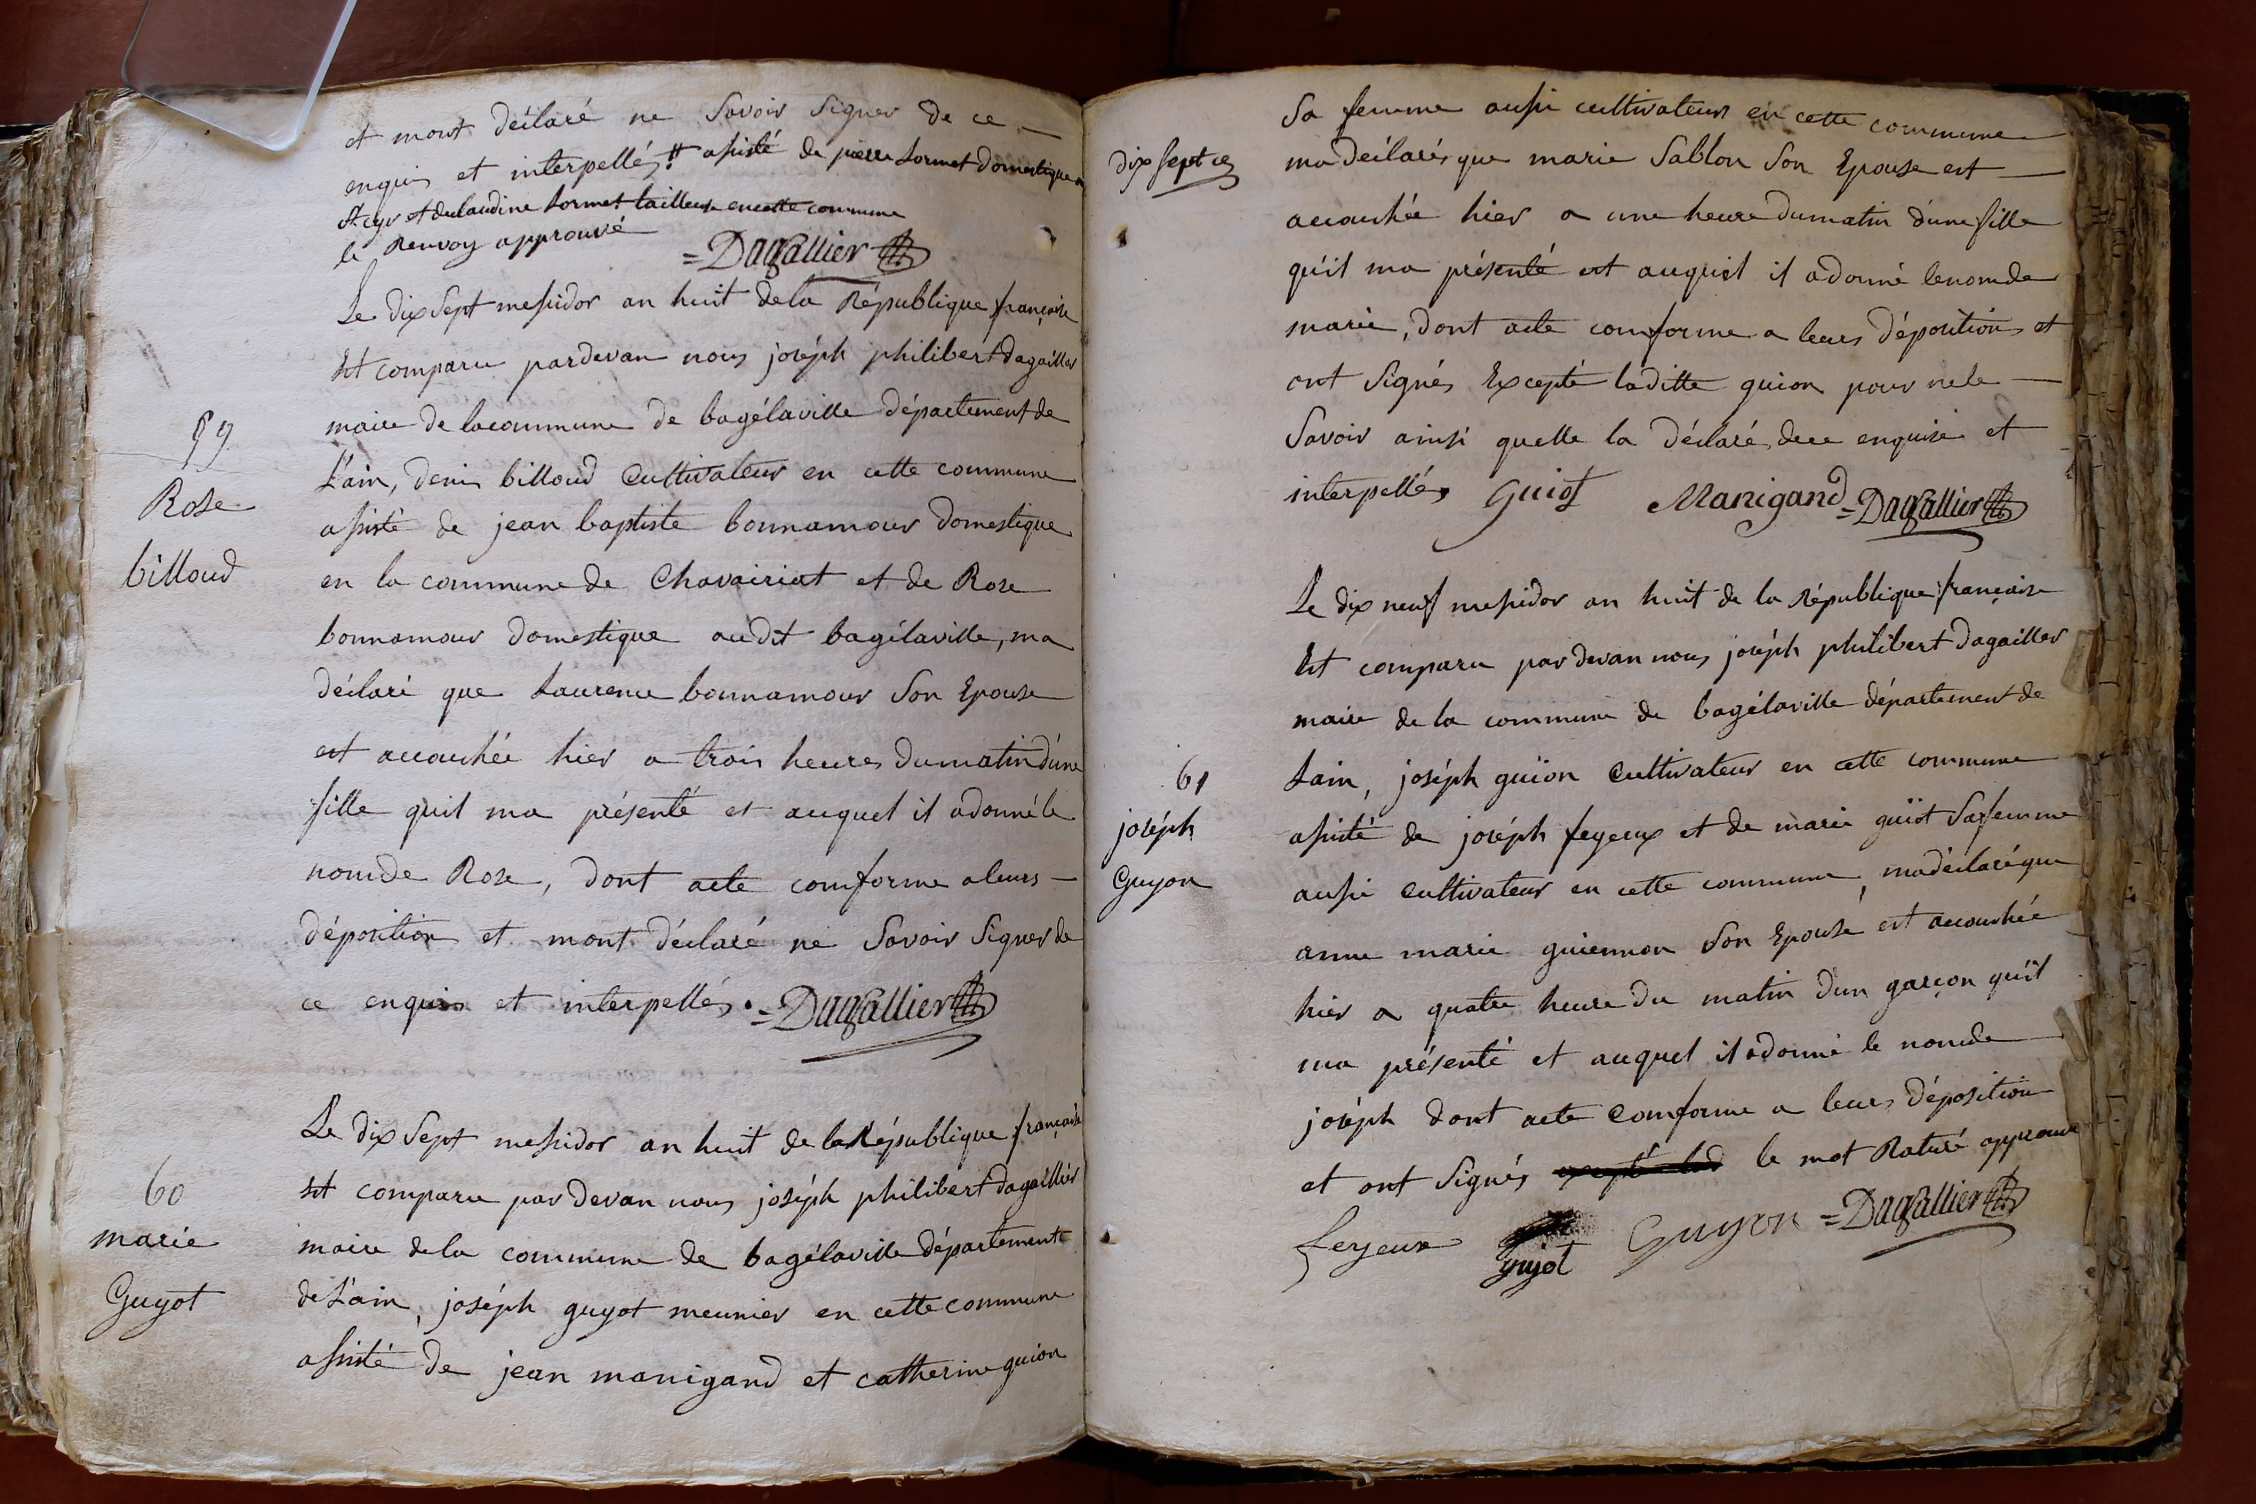 et mont déclaré ne Savoir Signer de ce
enquis et interpellés # assisté de pierre Lormet domestique a
St cyr et de claudine Lormet tailleuse en cette commune
le Renvoy approuvé
= Dagallier
Le dix Sept messidor an huit dela République françoise
Est comparu pardevan nous joséph philibert dagallier
maire de lacommune de bagélaville département de
59
L'ain, denis billoud Cultivateur en cette commune
Rose
assisté de jean baptiste bonnamour domestique
billoud
en la commune de Chavairiat et de Rose
bonnamour domestique audit bagélaville, ma
déclaré que Laurence bonnamour Son Epouse
est accouchée hier a trois heures dumatin d'une
fille quil ma présenté et auquel il adonné le
nomde Rose, dont acte comforme aleurs
déposition et mont déclaré ne Savoir Signer de
ce enquis et interpellés. = Dagallier
Le dix Sept messidor an huit de la République françoise
60
Est comparu par devan nous joséph philibert dagallier
marie
maire dela commune de bagélaville département
Guyot
de L'ain, joséph guyot meunier en cette commune
assisté de jean manigand et catherine guion
Sa femme aussi cultivateur en cette commune
dix Sept
ma déclarés que marie Sablon Son Epouse est
accouchée hier a une heure dumatin d'une fille
qu'il ma présenté et auquel il adonné lenomde
marie, dont acte comforme a leurs déposition et
ont Signés Excepté laditte guion pour nele
Savoir ainsi quelle la déclaré, de ce enquise et
interpellés Guiot Manigand = Dagallier
Le dix neuf messidor an huit de la République françoise
Est comparu par devan nous joséph philibert dagallier
maire de la commune de bagélaville département de
61
Lain, joséph guïon Cultivateur en cette commune
joséph
assisté de joséph feyeux et de marie guïot Sa femme
Guyon
aussi Cultivateur en cette commune, ma déclaré que
anne marie guiennon Son Epouse est accouchée
hier a quatre heure du matin d'un garçon qu'il
ma présenté et auquel il adonné le nomde
joséph dont acte Comforme a leurs déposition
et ont Signés le mot Raturé approuvé
feyeux guyot Guyon = Dagallier